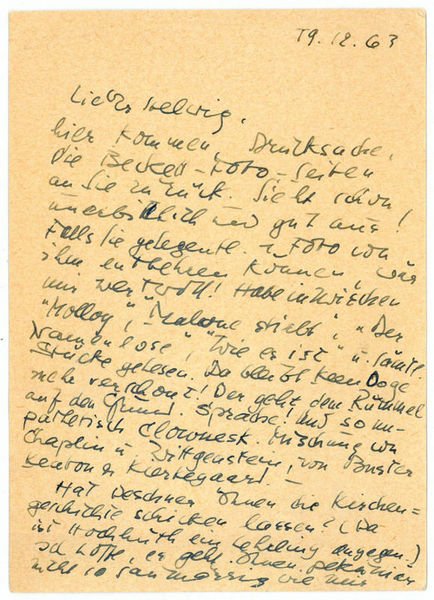 19.12.63
Lieber Helwig,
hier kommen, Drucksache,
die Beckett-Foto-Seiten
an Sie zurück. Sieht schön!
unerbittlich und gut aus!
Falls Sie gelegentl. 1 Foto von
ihm entbehren können, wär
mir wertvoll! Habe inzwischen
"Molloy", "Malone stirbt", "Der
Namenlose", "Wie es ist" u. sämtl.
Stücke gelesen. Da bleibt keen Ooge
mehr verschont! Der geht dem Rummel
auf den Grund. Sprache! und so un-
pathetisch clownesk. Mischung von
Chaplin u. Wittgenstein, von Buster
Keaton u. Kierkegaard. —
Hat Deschner Ihnen die Kirchen-
geschichte schicken lassen? (Da
ist Hochhuth ein Lehrling dagegen)
Ich hoffe, es geht Ihnen pekuniär
nicht so saumässig wie mir